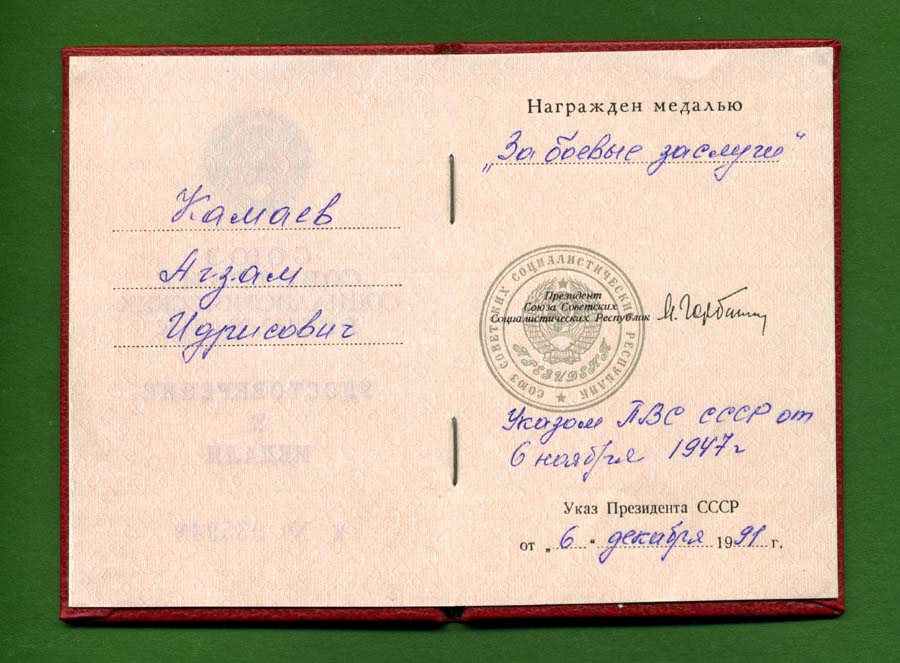 Камаев
Агзам
Идрисович
Награжден медалью
„За боевые заслуги“
СОЮЗ СОВЕТСКИХ СОЦИАЛИСТИЧЕСКИХ РЕСПУБЛИК
Президент
Союза Советских
Социалистических Республик
ПРЕЗИДЕНТ
Указом ПВС СССР от
6 ноября 1947 г
Указ Президента СССР
от „6“ декабря 1991 г.